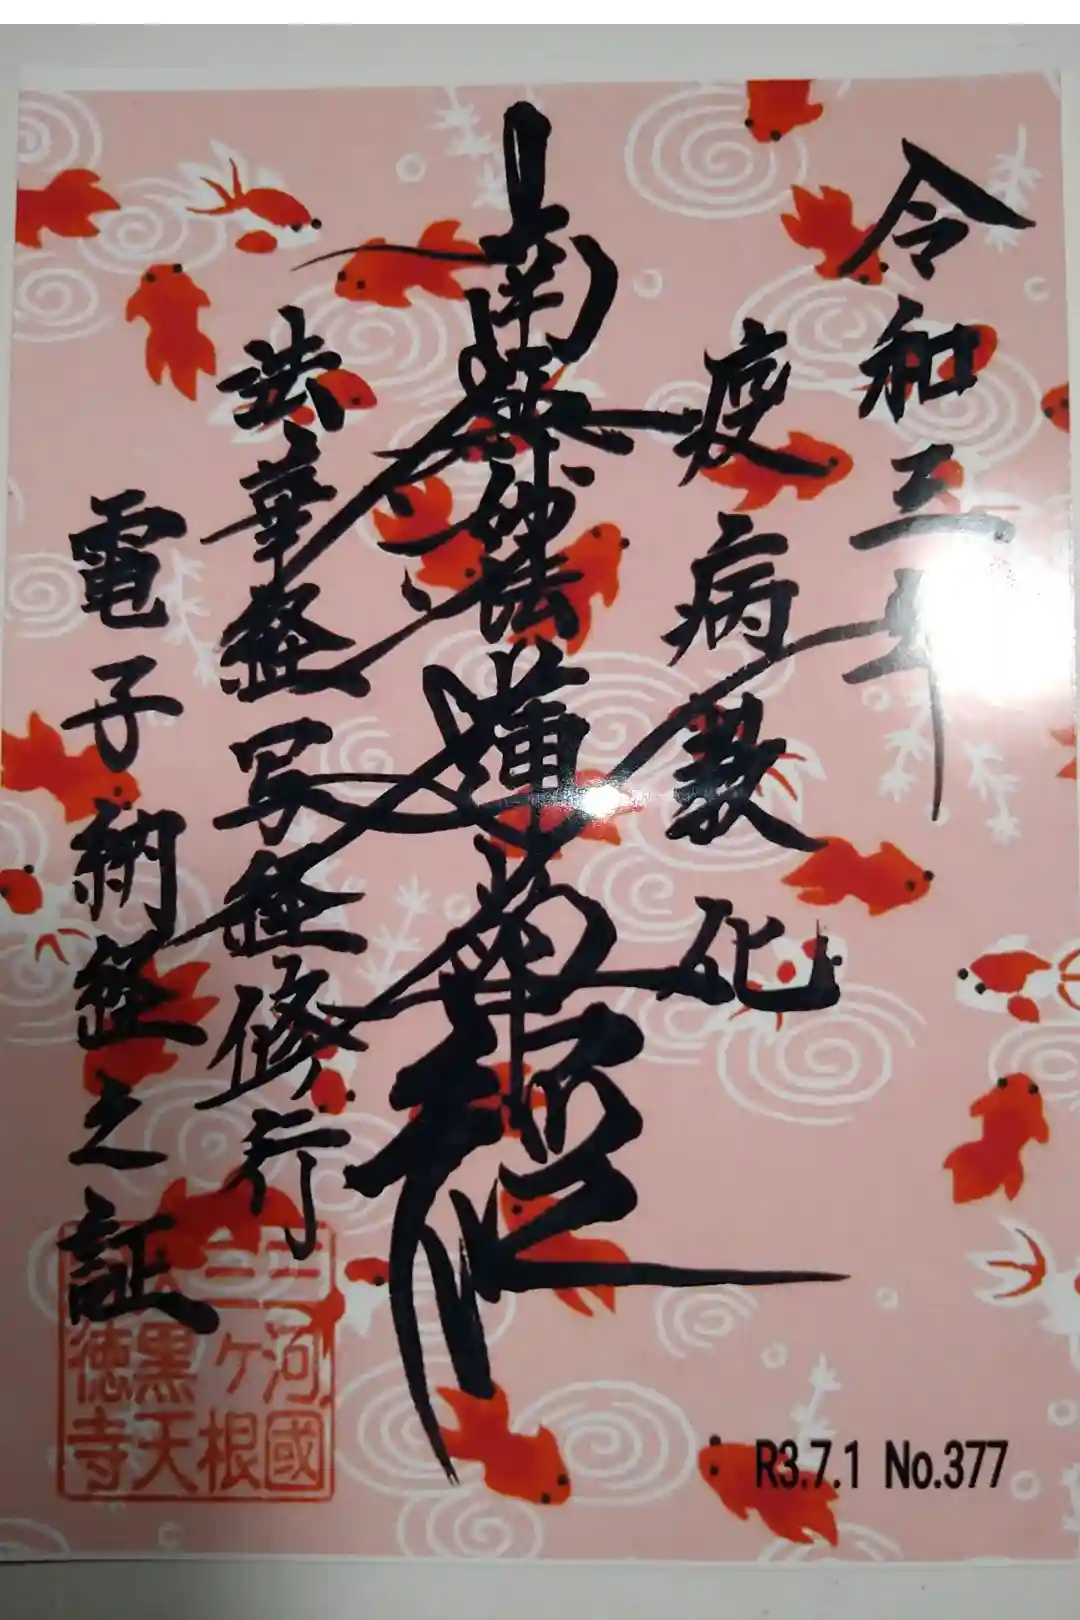 令和三年
疫病教化
南無妙法蓮華経
法華経写経修行
電子納経之証
三河國
三ケ根
黒天
徳寺
R3.7.1 No.377